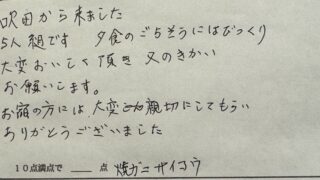 吹田から来ました
5人組です 夕食のごちそうにはびっくり
大変おいしく頂き 又のきかい
お願いします。
お宿の方には大変親切にしてもらい
ありがとうございました
10点満点で ___ 点 焼ガニサイコウ